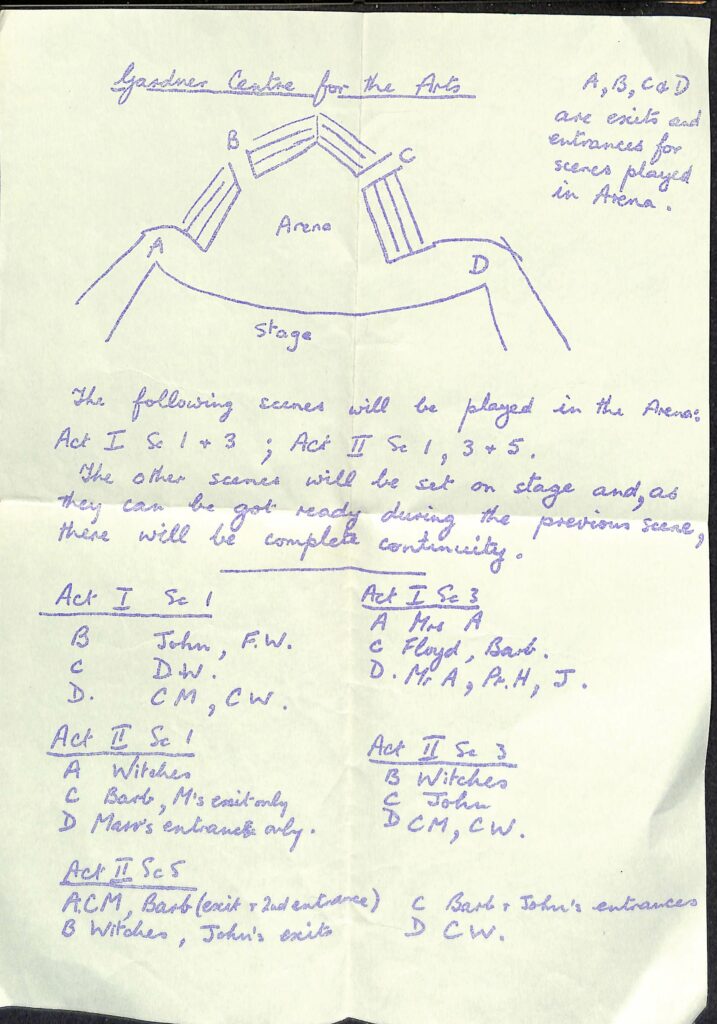 Gardner Centre for the Arts
A, B, C & D
are exits and
entrances for
scenes played
in Arena.
B
C
Arena
A
D
Stage
The following scenes will be played in the Arena:
Act I Sc 1 + 3 ; Act II Sc 1, 3 + 5.
The other scenes will be set on stage and, as
they can be got ready during the previous scene,
there will be complete continuity.
Act I Sc 1
B John, F.W.
C D.W.
D. CM, CW.
Act I Sc 3
A Mrs A
C Floyd, Barb.
D. Mr A, Pr. H, J.
Act II Sc 1
A Witches
C Barb, M's exit only
D Marr's entrance only.
Act II Sc 3
B Witches
C John
D CM, CW.
Act II Sc 5
A. CM, Barb (exit + 2nd entrance)
B Witches, John's exits
C Barb + John's entrances
D CW.